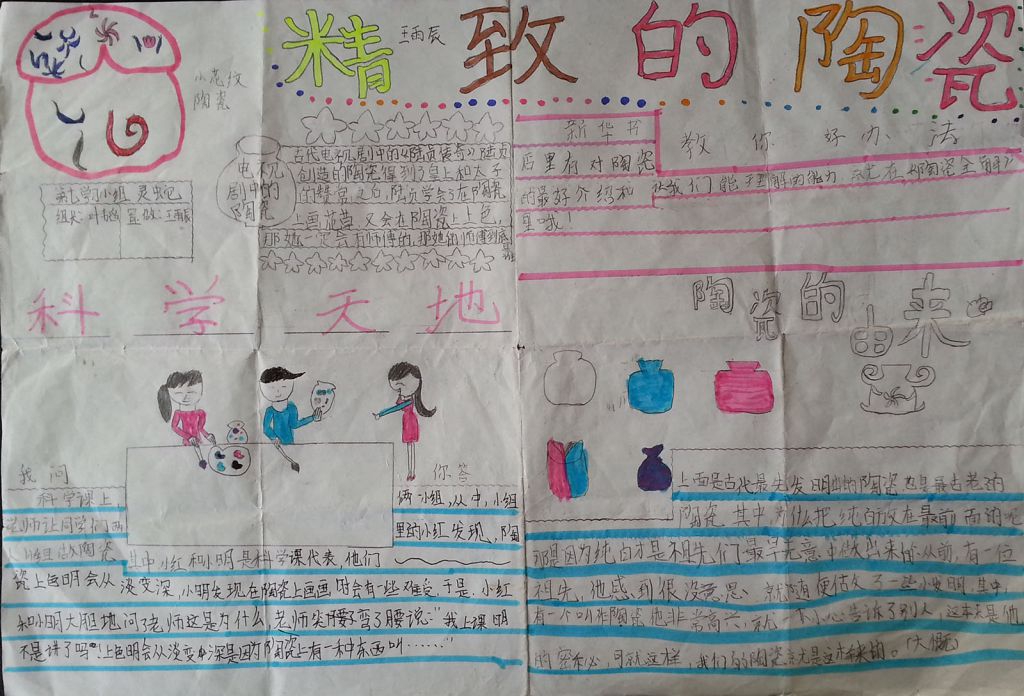 精致的陶瓷
王雨辰
小花纹
陶瓷
组长:叶
电视
剧中的
陶瓷
古代电视剧中的《陆贞传奇》陆贞
创造的陶瓷得到了皇上和太子
的赞赏之后,陆贞学会了在陶瓷
上画花草,又会在陶瓷上上色,
那她一定会有师傅的,那她的师傅到底
新华书
店里有对陶瓷
的最好介绍和
教你好办法
我们能理解的能力
科学天地
陶瓷的由来
我问
你答
科学课上
老师让同学们两
俩小组,从中,小组
里的小红发现,陶
组做陶瓷
其中小红和小明是科学课代表,他们
瓷上色明会从淡变深,小明发现在陶瓷上画画时会有一些难受于是,小红
和小明大胆地问老师这是为什么,老师笑弯了腰说:“我上课明
不是讲了吗?上色明会从淡变深是因为陶瓷上有一种东西叫……”
上面是古代最先发明出的陶瓷也是最古老的
陶瓷,其中为什么把纯白放在最前面的呢
那是因为纯白才是祖先们最早无意中做出来的从前,有一位
祖先,他感到很没意思,就随便估久了一些小发明其中,
有一个叫作陶瓷他非常高兴,就一不小心告诉了别人,这本来是他
的密秘,可就这样,我们的陶瓷就是这样来的。(大概)